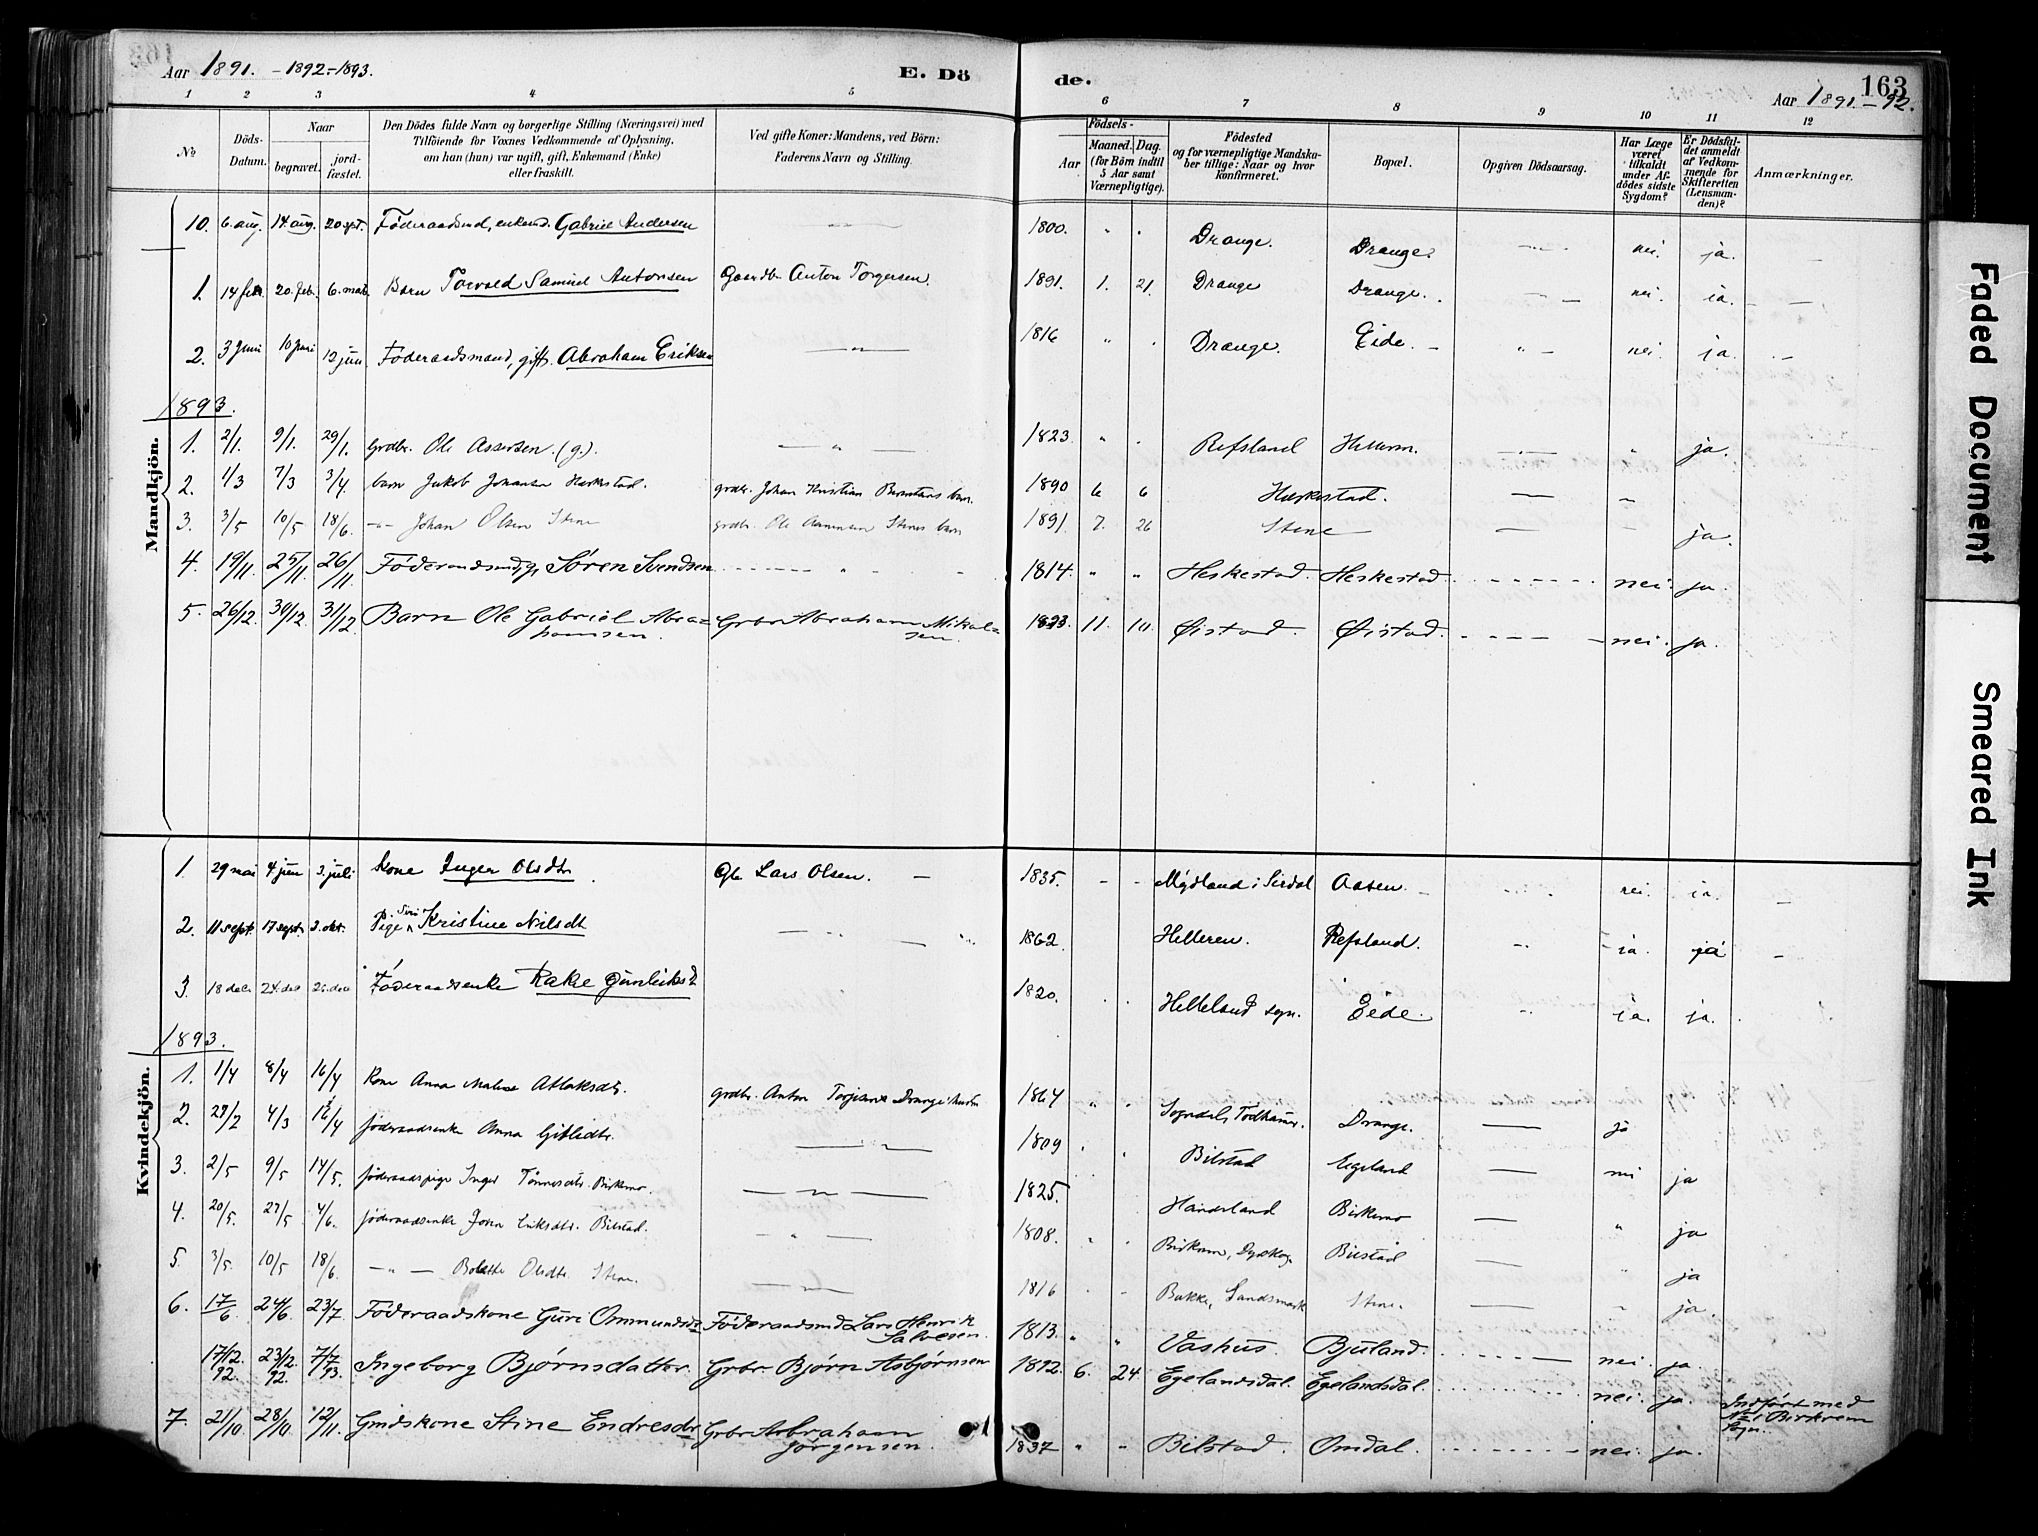 163
Aar 1891. - 1892 - 1893.
E. Dö
de.
Aar 1891. - 92.
1 2 3 4 5 6 7 8 9 10 11 12
№
Döds-Datum.
Naar
begravet.
jord-fæstet.
Den Dödes fulde Navn og borgerlige Stilling (Næringsvei) med
Tilföiende for Voxnes Vedkommende af Oplysning,
om han (hun) var ugift, gift, Enkemand (Enke)
eller fraskilt.
Ved gifte Koner: Mandens, ved Börn:
Faderens Navn og Stilling.
Födsels-
Aar
Maaned. Dag.
(for Börn indtil
5 Aar samt
Værnepligtige).
Födested
og for værnepligtige Mandska-
ber tillige: Naar og hvor
konfirmeret.
Bopæl.
Opgiven Dödsaarsag.
Har Læge
været
tilkaldt
under Af-
dödes sidste
Sygdom?
Er Dödsfal-
det anmeldt
af Vedkom-
mende for
Skifteretten
(Lensman-
den)?
Anmærkninger.
Mandkjön.
10. 6. aug. 14. aug. 20 spt. Føderaadsmd, enkemd. Gabriel Andersen — " — 1800. " " Drange. Drange. nei. ja. —
1. 14 feb. 20. feb. 6. mar. Barn Torvald Samuel Antonsen Gaardb. Anton Torgersen. 1891. 1. 21. Drange Drange. nei. ja. —
2. 3 Juni 10 Juni 12 juni Føderaadsmand, gift. Abraham Eriksen — " — 1816 " " Drange. Eide. — " — nei. ja. —
1893.
1. 2/1. 9/1. 29/1. Grdbr. Ole Assersen. (g.). — " — 1823. " " Refsland Helleren. — " ja.
2. 1/3 7/3 3/4. barn Jakob Johansen Heskestad. grdbr. Johan Kristian barn. 1890 6 6 Heskestad. — "
3. 3/5 10/5 18/6. — " — Johan Olsen Stene grdbr. Ole Stenes barn 1891. 7. 26 Stene — ja.
4. 19/11. 25/11. 26/11 Føderaadsmd, g, Sören Svendsen " 1814. " " Heskestad. Heskestad. nei. ja.
5. 26/12. 30/12. 31/12 Barn Ole Gabriel Abra=
hamsen. Grbr Abraham Mikal=
sen. 1893. 11. 10. Øistad. Øistad. nei. ja.
Kvindekjön.
1. 29 mai 4 jun 3. juli Kone Inger Olsdtr Gb. Lars Olsen. — 1835. — — Mydland i Sirdal Aasen. — nei. ja. —
2. 11 sept. 17 sept. 2. okt. Pige Siri Kristine Nilsdt — " — 1862. Helleren. Refsland. " ja. ja —
3. 18 dec. 24. dec Føderaadsenke Rakel Gunleiksd. 1820. Helleland sogn. Eide. " ja. ja.
1893.
1. 1/4 8/4 16/4 Kone Anna Malene Atlaksdtr. grdbr. Anton Torgersens Drange hustru 1864 " " Sogndal, Drange. — ja
2. 28/2 4/3 16/4 føderaadsenke Anna — " — 1809 Bilstad Eigeland — nei ja
3. 2/5 9/5 14/5. føderaadspige Inger Tønnesdtr. Birkemo. — " — 1825. Hæness­land Birkemo — " ja
4. 20/5. 27/5 4/6. føderaadsenke Joren Eriksdtr. Bilstad. — " — 1808. Birkrem, Bilstad " ja
5. 3/5. 10/5 18/6. — " — Bolette Olsdtr. Stene — " — 1816 Bakke, Stene — " ja.
6. 17/6 24/6 23/7 Føderaadskone Guri Ommundsdr Føderaadsmd Lars Henrik
Salvesen. 1813. " " Vashus. Bjuland. — nei. ja.
17/12. 92. 23/12. 92. 7/7 93. Ingeborg Bjørnsdatter. Grbr. Bjørn Asbjørnsen 1892. 6. 24. Egelandsdal. Egelandsdal. nei. ja. Indført med
Nr 1 Birkrem
Sogn.
7. 21/10. 28/10. 12/11. Gmdskone Stine Endresdr Grbr Abraham
Jørgensen. 1837 " " Bilstad. Omdal. nei. ja.
Faded Document
Smeared Ink